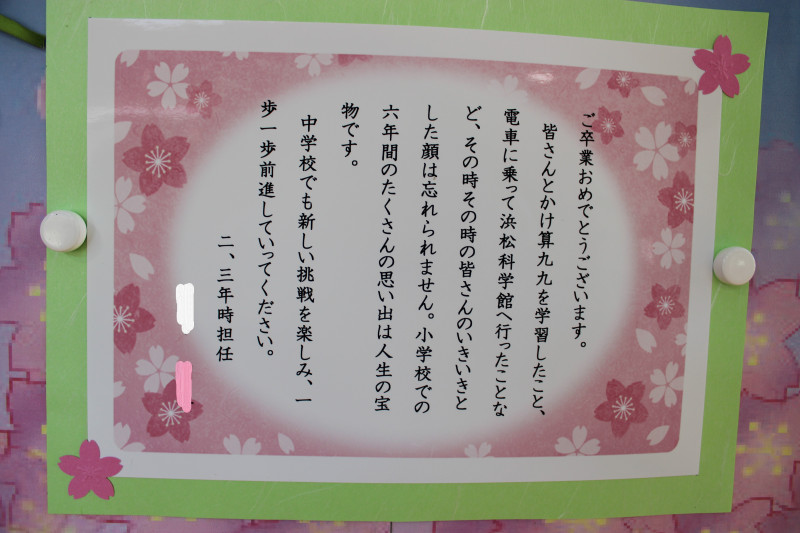 ご卒業おめでとうございます。
皆さんとかけ算九九を学習したこと、
電車に乗って浜松科学館へ行ったことな
ど、その時その時の皆さんのいきいきと
した顔は忘れられません。小学校での
六年間のたくさんの思い出は人生の宝
物です。
中学校でも新しい挑戦を楽しみ、一
歩一歩前進していってください。
二、三年時担任